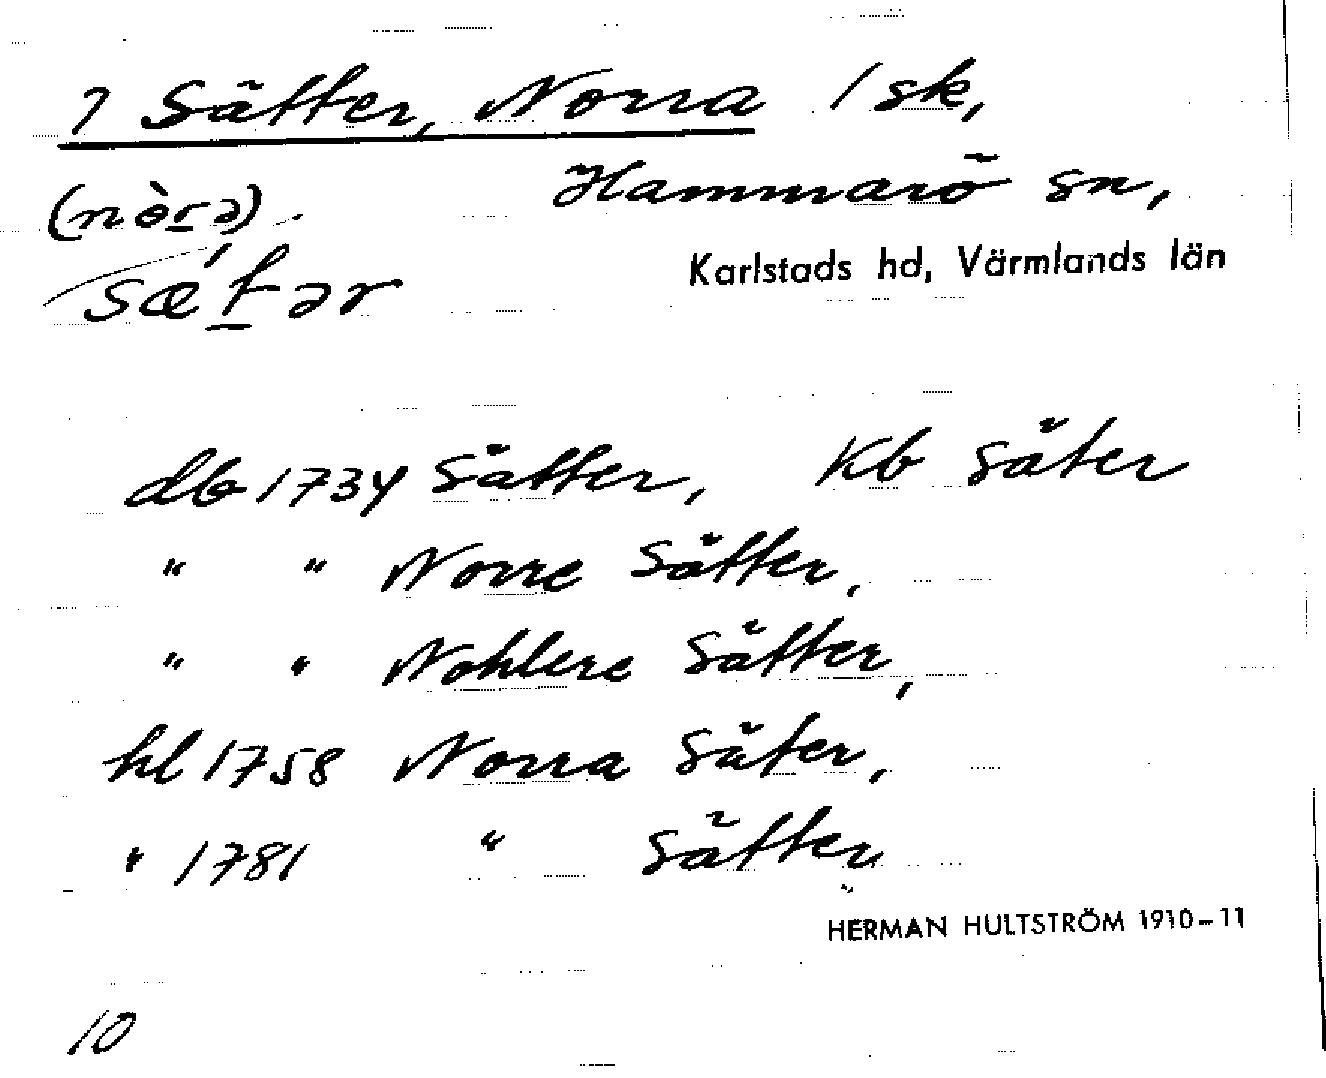 7 Sätter, Norra 1 sk,
Hammarö sn,
(nòrə)
sæ̀tər
Karlstads hd, Värmlands län
db 1734 Sätter, Kb Säter
" " Norre Sätter,
" " Nohlere Sätter,
hl 1758 Norra Säter,
" 1781 " Sätter
HERMAN HULTSTRÖM 1910-11
10